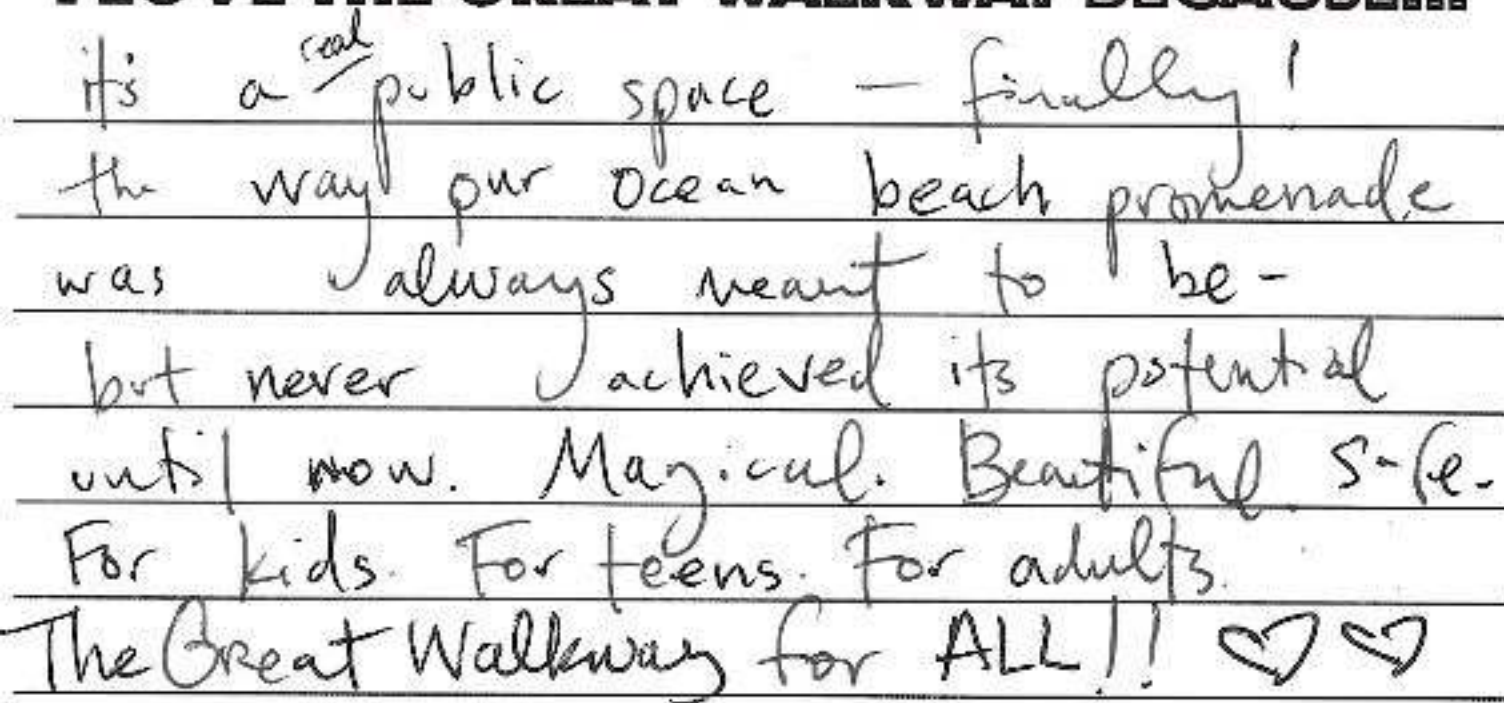 I LOVE THE GREAT WALKWAY BECAUSE...
it's a real public space – finally!
the way our ocean beach promenade
was always meant to be -
but never achieved its potential
until now. Magical. Beautiful. Safe.
For kids. For teens. For adults.
The Great Walkway for ALL!! ♡♡